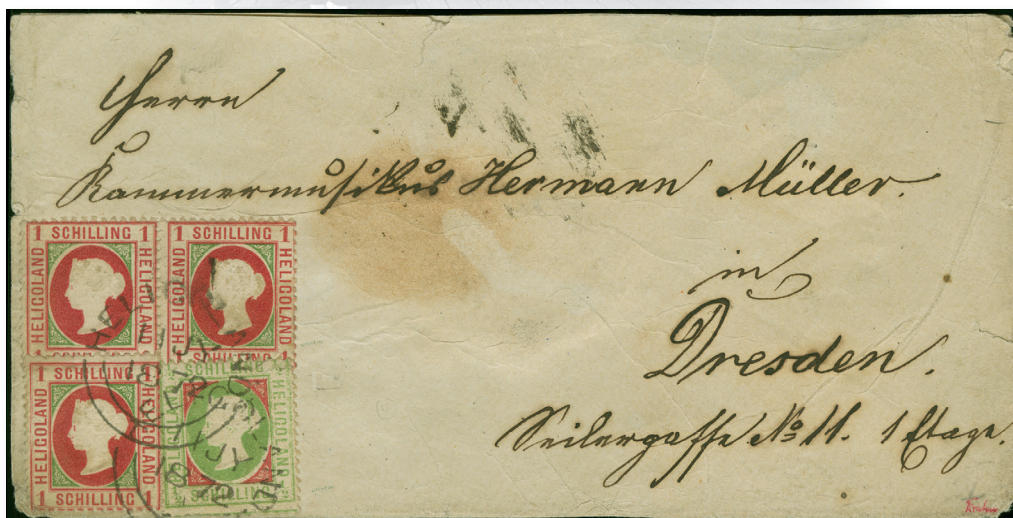 Herrn
Kammermusikus Hermann Müller.
in
Dresden.
Seilergasse No 11. 1 Etage.
1 SCHILLING 1
HELIGOLAND
HELIGOLAND
SCHILLING
1 SCHILLING 1
HELIGOLAND
HELIGOLAND
SCHILLING
1 SCHILLING 1
HELIGOLAND
HELIGOLAND
1 SCHILLING 1
SCHILLING
HELIGOLAND
HELIGOLAND
SCHILLING